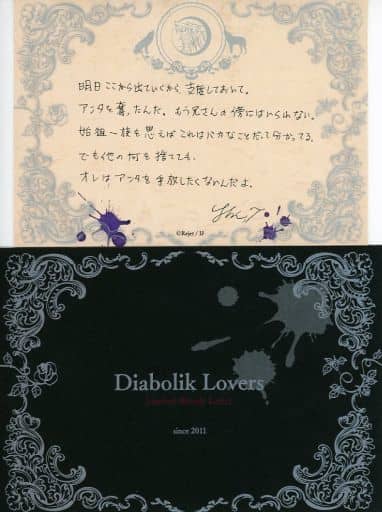 明日ここから出ていくから、支度しておいて。
アンタを奪ったんだ。もう兄さんの傍にはいられない。
始祖一族を思えばこれはバカなことだって分かってる。
でも他の何を捨てても、
オレはアンタを手放したくないんだよ。
©Rejet / IF
Diabolik Lovers
since 2011